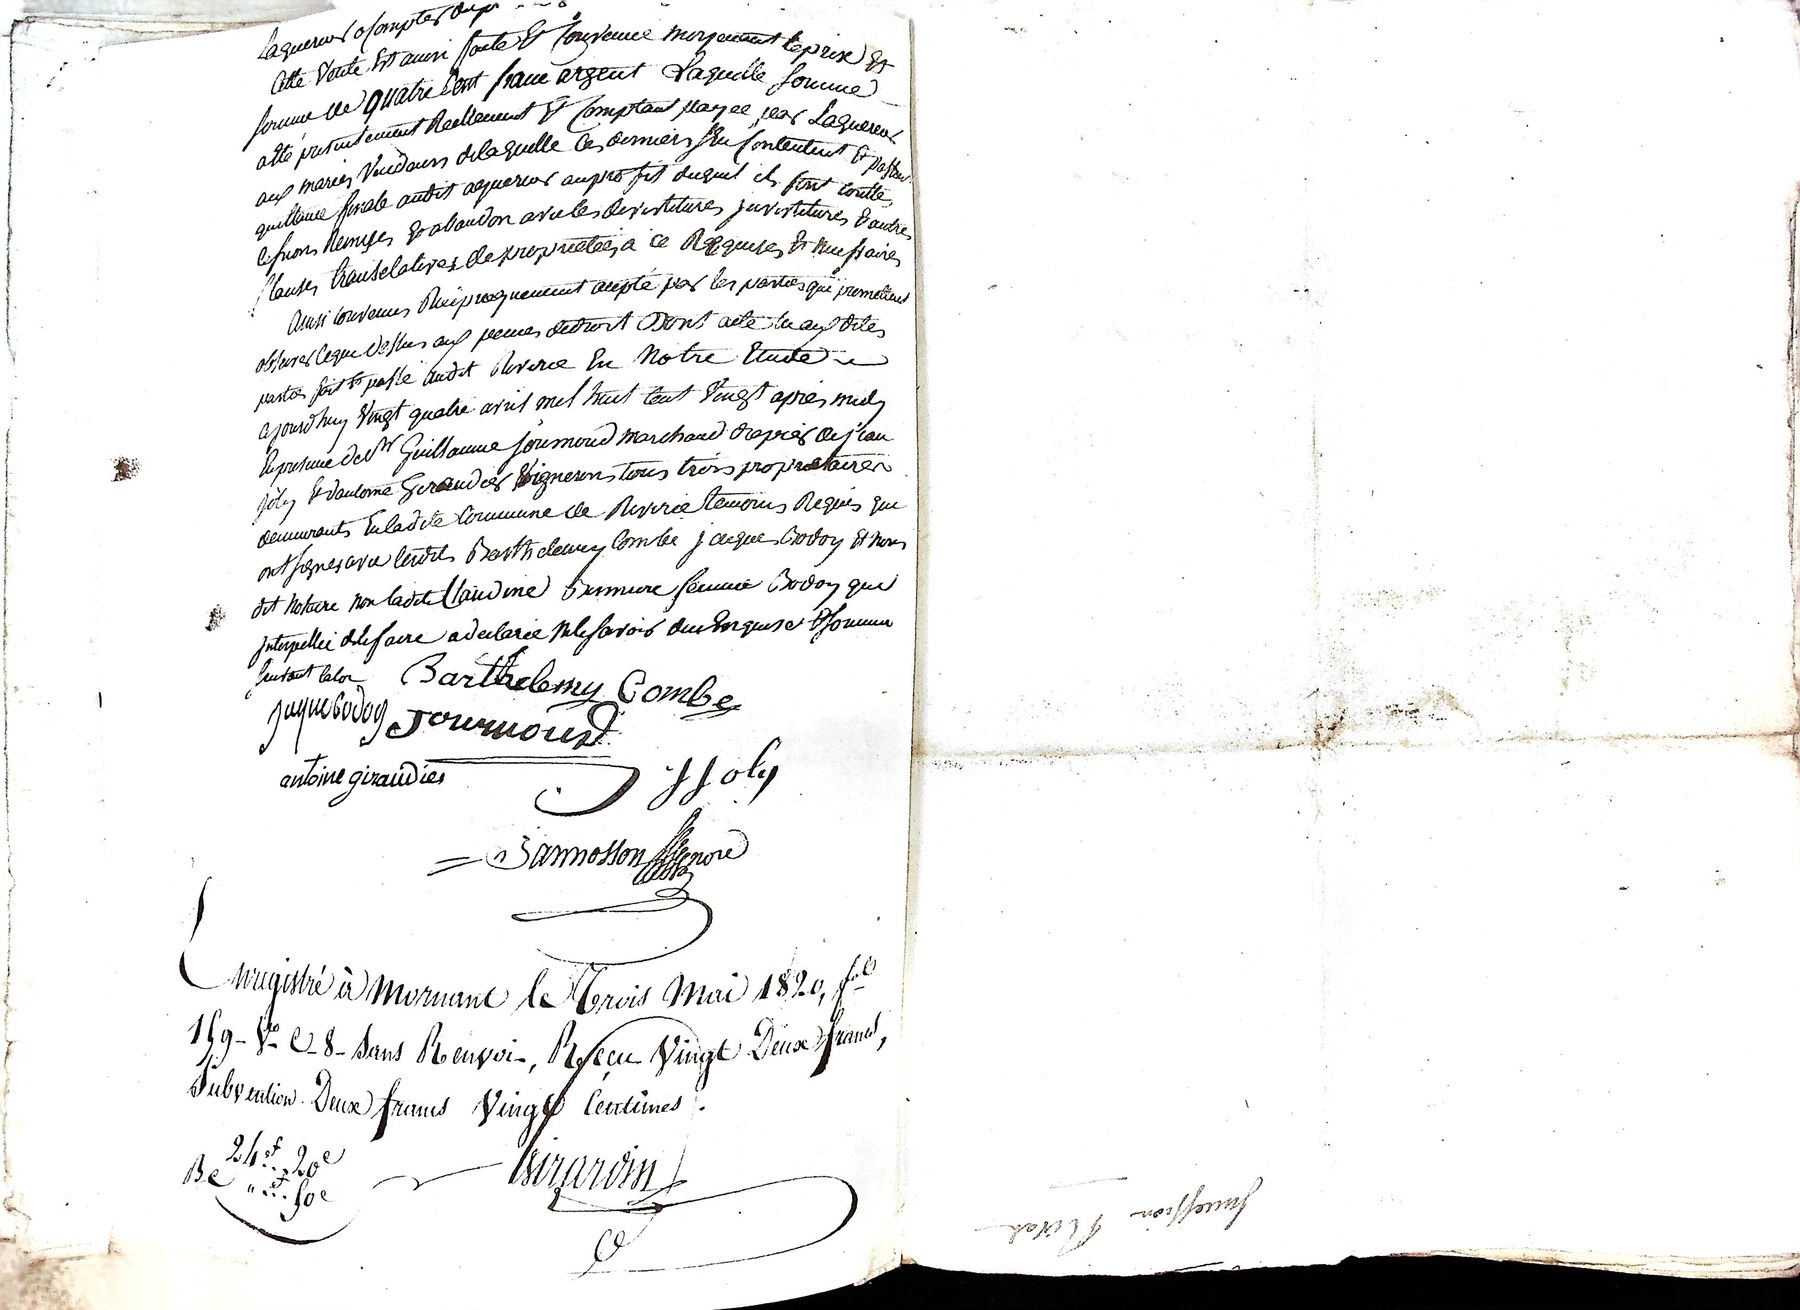 laquereur a Compter du
Cette Vente Est aussi faite Et Convenue moyennant le prix Et
somme de quatre Cent franc argent Laquelle somme
a été presentement Reellement Et Comptant payee par Laquereur
aux maries Vendeurs de laquelle Ces derniers sen Contentent Et passent
quittance finale audit aquereur au profit duquel ils font toutte
Cessions Remises Et abandon avec les devestitures jnvestitures Et autres
Clauses translatives de proprietées a ce Requises Et necessaires
Ainsi Convenus Reciproquement accepté par les parties qui promettent
observer Ceque dessus aux peines de droit Dont acte lu aux dites
parties fait Et passé audit Riverie En Notre Etude
ajourdhuy Vingt quatre avril mil huit Cent Vingt après midy
En presence de Sr Guillaume Journoud marchand drapier de jean
joly Et dantoine Giraudier Vigneron tous trois proprietaires
demeurants En ladite Commune de Riverie temoins Requis qui
ont signes avec lesdits Barthelemy Combe jacque Bodoy Et nous
dit Notaire non ladite Claudine femme Bodoy qui
jnterpellée de le faire a declaré Ne le savoir de ce Enquise Et sommee
suivant la loi
Barthelemy Combe
jaque bodoy Journoud
antoine giraudier JJoly
Bannosson
Enregistré à Mornant le Trois Mai 1820, fol
159 Vo C 8 Sans Renvoi, Reçu Vingt Deux francs,
Subvention Deux francs Vingt Centimes.
24f 20c
50c
Girardin
Succession